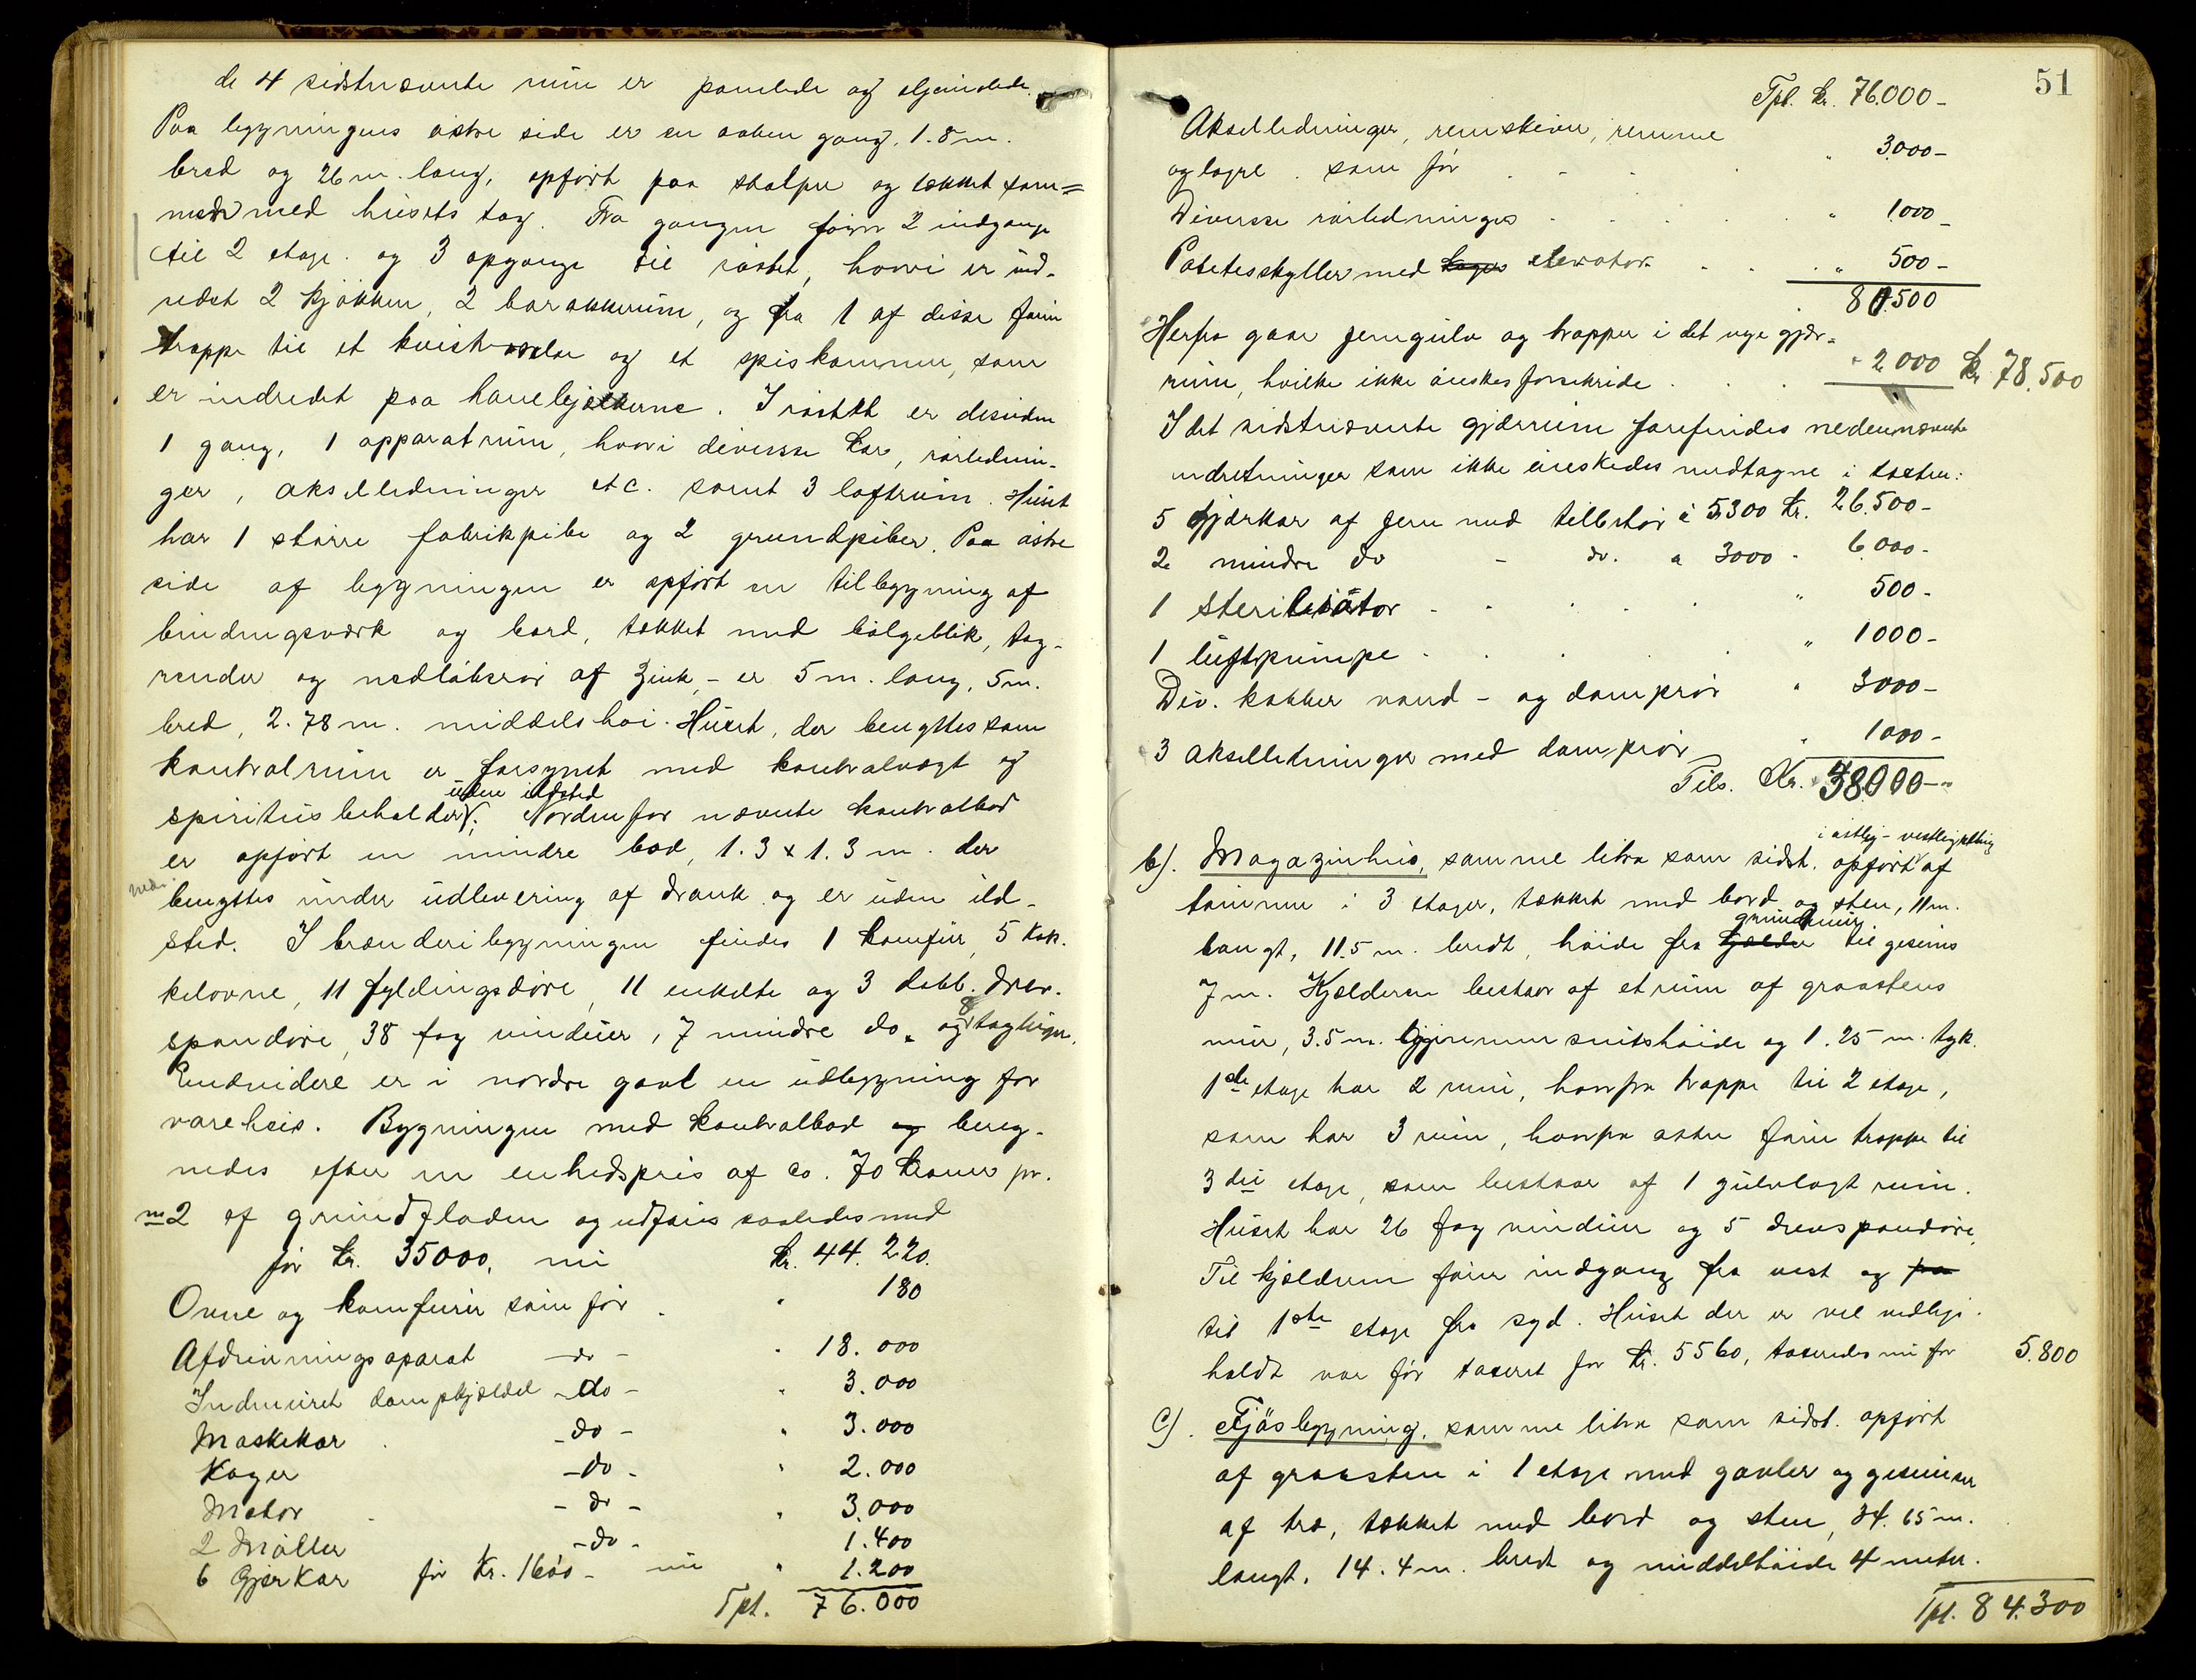 de 4 sidstnævnte rum er panelede og oljemalede.
Paa bygningens østre side er en aaben gang, 1.8 m.
bred og 26 m. lang, opført paa stolper og tækket sam=
men med husets tag. Fra gangen fører 2 indgange
til 2 etage og 3 opgange til røstet, hvori er ind-
redet 2 kjøkken, 2 barakkerum, og fra 1 af disse fører
trappe til et kvistværelse og et spiskammer, som
er indredet paa hanebjelkerne. I røstet er desuden
1 gang, 1 apparatrum, hvori diverse kar, rørlednin-
ger, akselledninger etc. samt 3 loftrum. Huset
har 1 større fabrikpibe og 2 grundpiber. Paa østre
side af bygningen er opført en tilbygning af
bindingsværk og bord, tækket med bølgeblik, tag-
render og nedløbsrør af zink, - er 5 m. lang, 5 m.
bred, 2.78 m. middels høi. Huset, der benyttes som
kontrolrum er forsynet med kontrolvægt og
uden ildsted
spiritusbeholder; Nordenfor nævnte kontrolbod
er opført en mindre bod, 1.3 x 1.3 m. der
benyttes under udlevering af drank og er uden ild-
sted. I brænderibygningen findes 1 komfur, 5 kak-
kelovne, 11 fyldingsdøre, 11 enkelte og 3 dobb. drev.
spandøre, 38 fag vinduer, 7 mindre do. og 8 tagluger.
Endvidere er i nordre gavl en udbygning for
vareheis. Bygningen med kontrolbod og bereg-
nedes efter en enhedspris af ca. 70 kroner pr.
m2 af grundfladen og udføres saaledes med
før kr. 35000, nu kr. 44.220.
Ovne og komfurer som før " 180
Afdrivningsaparat - do - " 18.000
Indmuret dampkjeldel - do - " 3.000
Maskekar - do - " 3.000
Koger - do - " 2.000
Motor - do - " 3.000
2 Møller - do - 1.400
6 Gjærkar før Kr. 1600 - nu " 1.200
Tpt. 76.000
51
Tpt. kr. 76.000 -
Akselledninger, remskiver, remme
og lagre som før " 3.000 -
Diverse rørledninger " 1000 -
Potetesskyller med kager elevator " 500 -
80.500
Herfra gaar jerngulv og trapper i det nye gjær-
rum, hvilke ikke ønskes forsikride " 2.000 kr. 78.500
I det sidstnævnte gjærrum forefindes nedennævnte
indretninger som ikke ønskedes medtagne i taxten:
5 gjærkar af jern med tilbehør à 5300 kr. 26.500 -
2 mindre do - do. a 3000 - 6.000 -
1 sterilisator " 500 -
1 luftpumpe " 1000 -
Div. kobber vand- og damprør " 3000 -
3 akselledninger med damprør " 1000 -
Tils. Kr. 38000 -
i østlig - vestlig retning
b). Magazinhus, samme litra som sidst. opført af
tømmer i 3 etager, tækket med bord og sten, 11 m.
grundmur
langt, 11.5 m. bredt, høide fra kjælder til gesims
7 m. Kjælderen bestaar af et rum af graastens
mur, 3.5 m. gjennemsnitshøide og 1.25 m. tyk.
1ste etage har 2 rum, hvorfra trappe til 2 etage,
som har 3 rum, hvorfra atter fører trappe til
3die etage, som bestaar af 1 gulvlagt rum.
Huset har 26 fag vinduer og 5 drevspandøre,
Til kjælderen fører indgang fra vest og fra
til 1ste etage fra syd. Huset der er vel vedlige-
holdt var før taxeret for kr. 5560, taxeredes nu for 5.800
C). Fjøsbygning, samme litra som sidst. opført
af graasten i 1 etage med gavler og gesimser
af træ, tækket med bord og sten, 34.65 m.
langt, 14.4 m. bredt og middelhøide 4 meter.
Tpt. 84.300